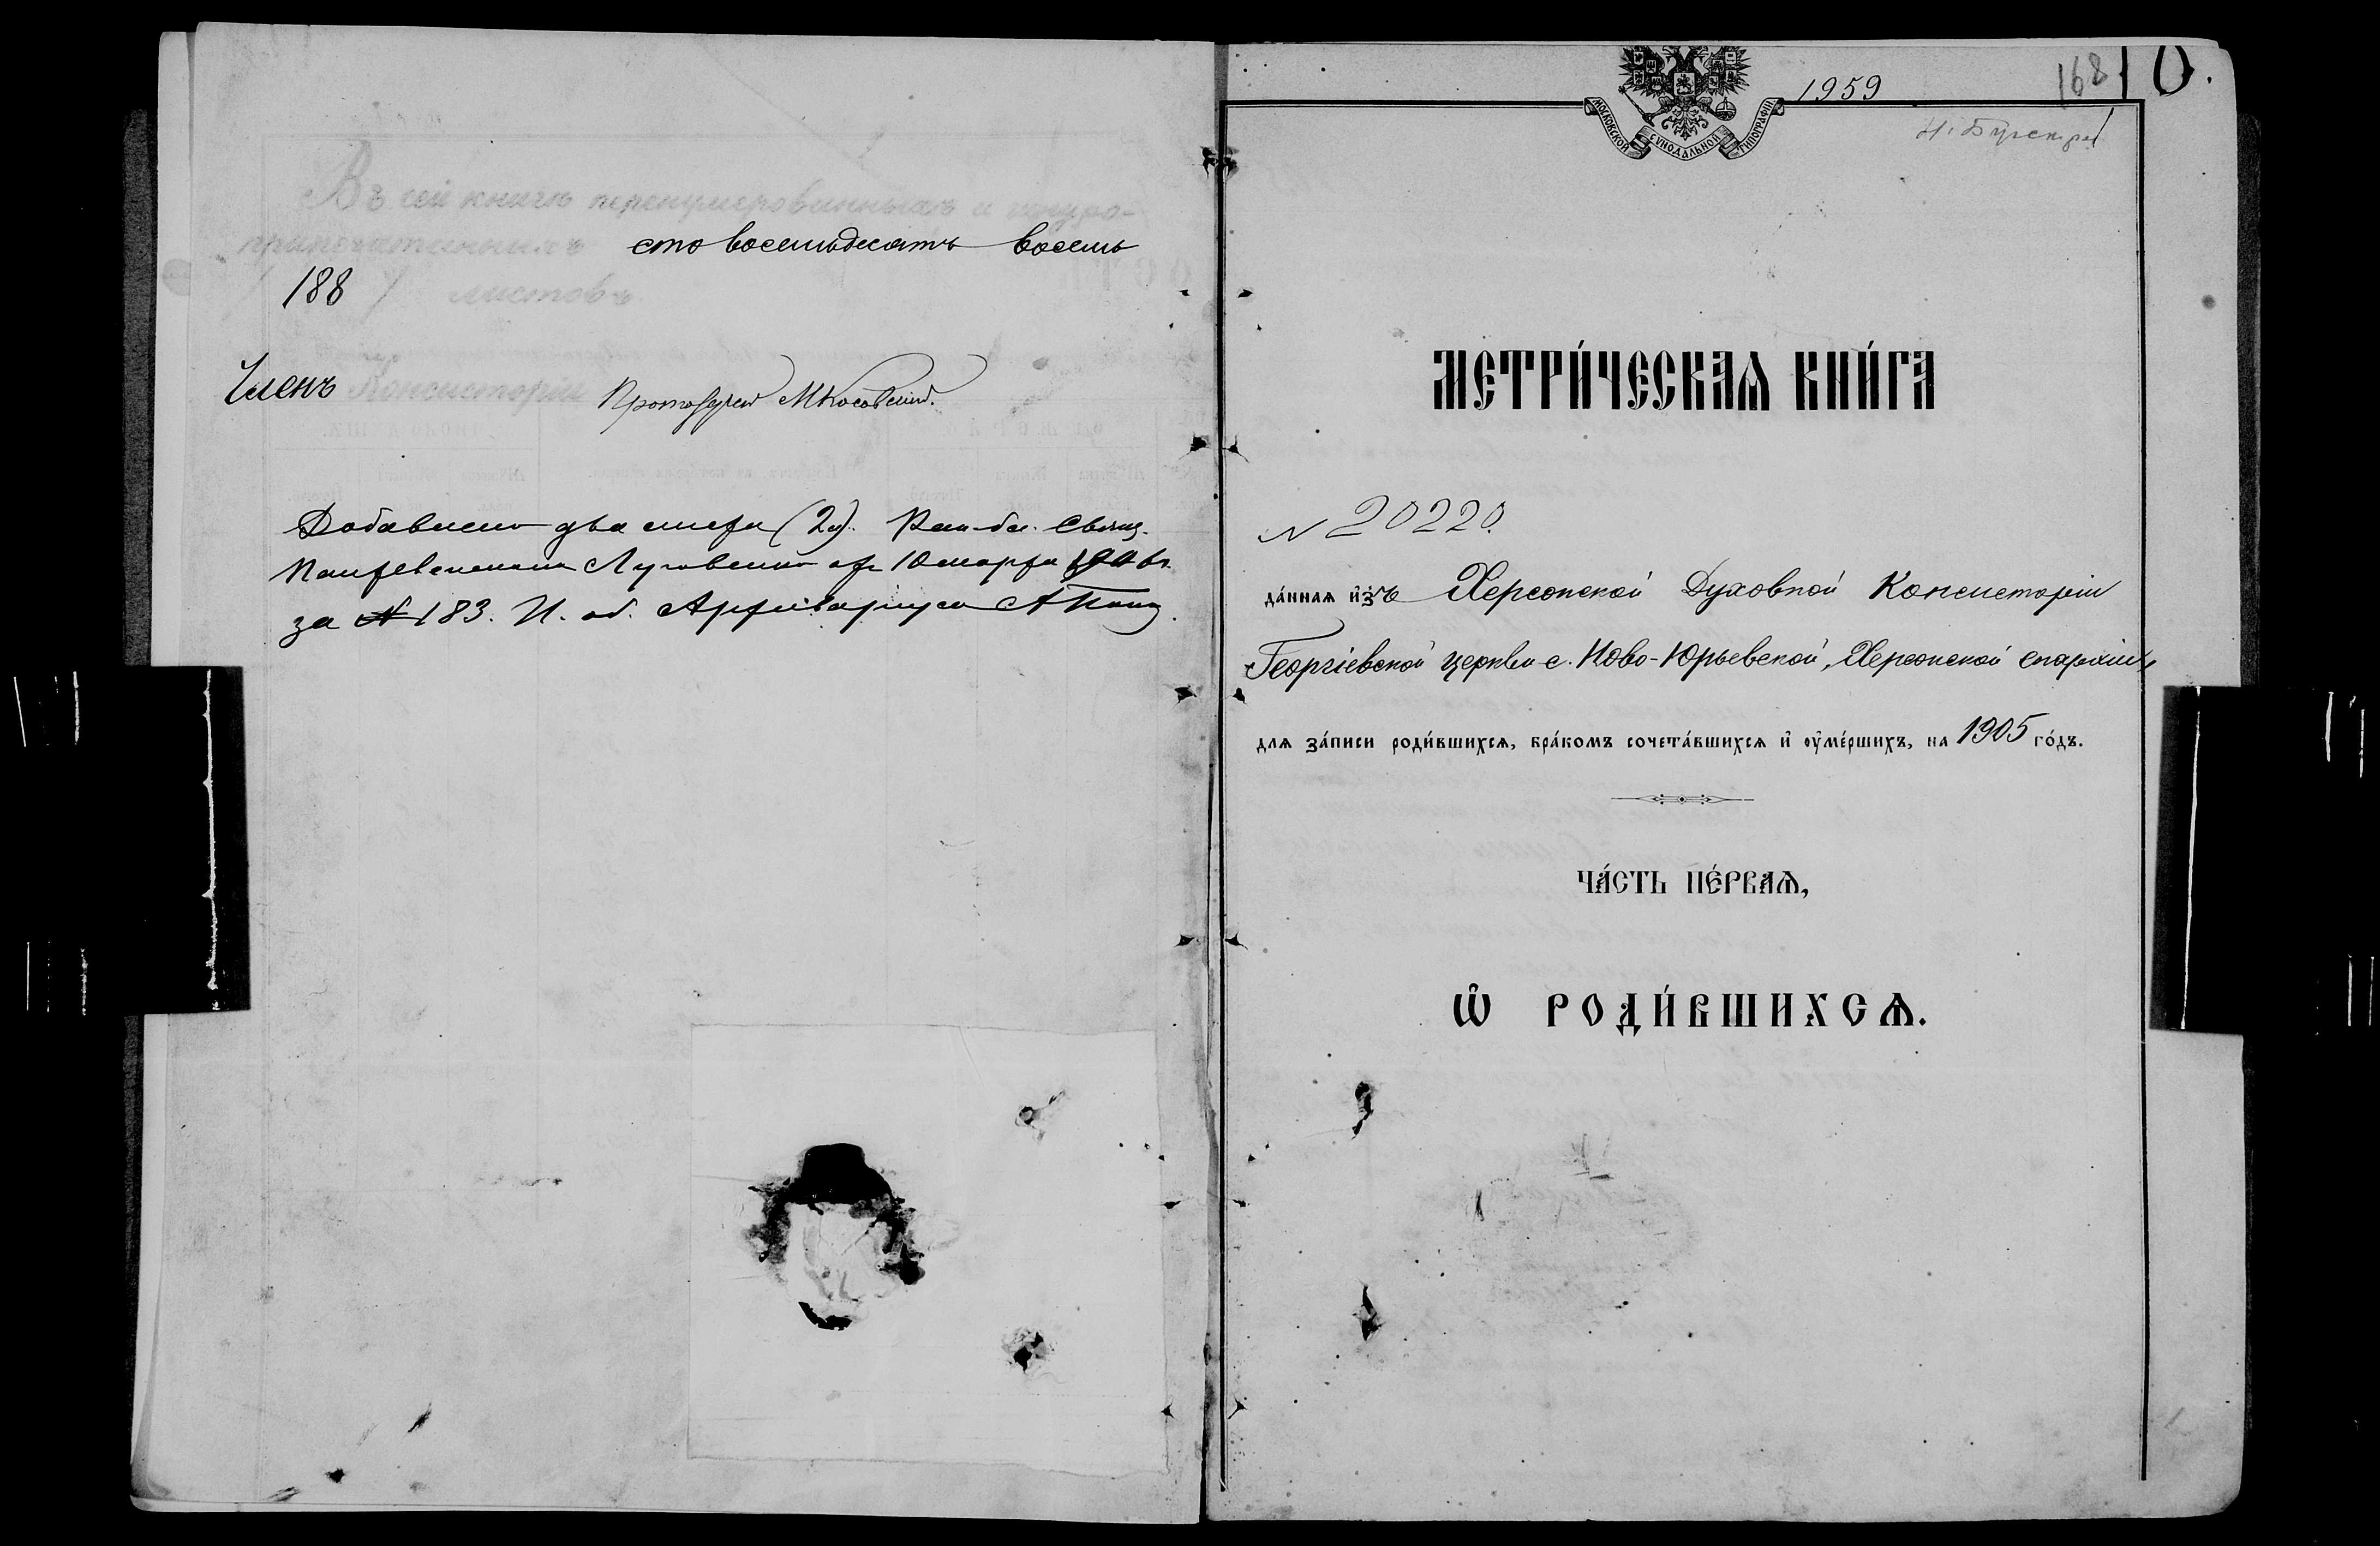 Въ сей книгѣ перенумерованныхъ и шнуро-
припечатанныхъ сто восемьдесятъ восемь
188 / листовъ
Членъ Консисторіи Протоіерей М Косовскій.
Добавлено два листа (2 л).
за № 183. И. об. Архиваріуса
1959
168
10.
МОСКОВСКОЙ СѴНОДАЛЬНОЙ ТИПОГРАФІИ
МЕТРИ́ЧЕСКАѦ КНИ́ГА
№ 20220.
да́ннаѧ и҆зъ Херсонской Духовной Консисторіи
Георгіевской церкви с. Ново-Юрьевской, Херсонской епархіи,
для за́писи роди́вшихсѧ, бра́комъ сочета́вшихсѧ и҆ ѹ҆ме́ршихъ, на 1905 го́дъ.
ЧА́СТЬ ПЕ́РВАѦ,
Ѡ҆ РОДИ́ВШИХСѦ.